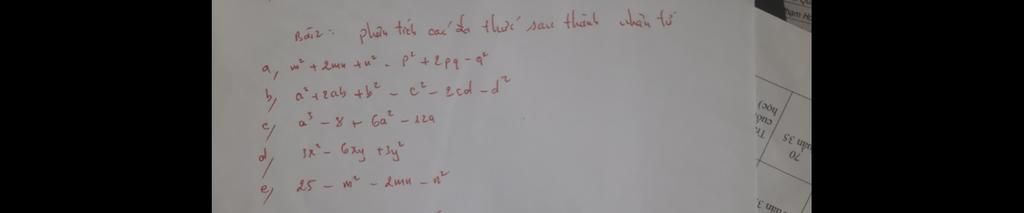 Bài 2: phân tích các đa thức sau thành nhân tử
a, m² + 2mn + n² - p² + 2pq - q²
b, a² + 2ab + b² - c² - 2cd - d²
c, a³ - 8 + 6a² - 12a
d, 3x² - 6xy + 3y²
e, 25 - m² - 2mn - n²
ham H
học)
cuối
Tr
uần 35
70